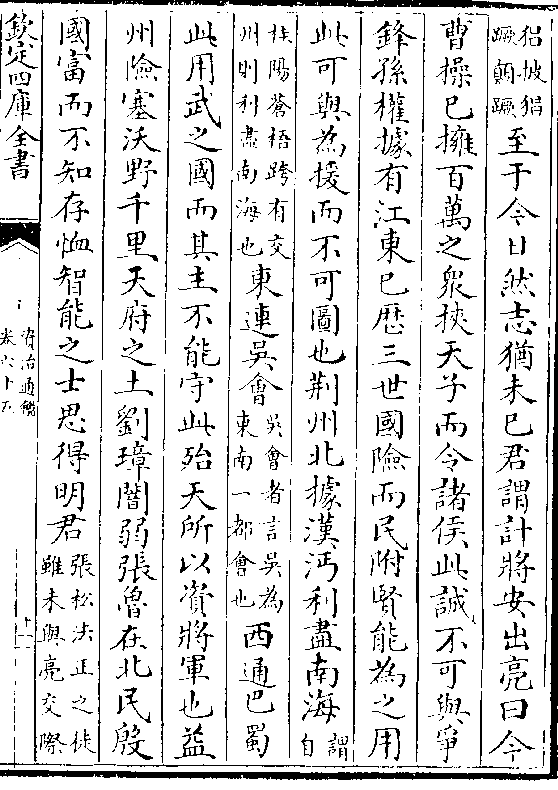 猖披猖
蹶顛蹶
至于今日然志猶未已君謂計將安出亮曰今
曹操已擁百萬之衆挾天子而令諸侯此誠不可與爭
鋒孫權據有江東已歷三世國險而民附賢能為之用
此可與為援而不可圖也荆州北據漢沔利盡南海
謂
自
桂陽蒼梧跨有交
州則利盡南海也
東連吳會
吳會者言吳為
東南一都會也
西通巴蜀
此用武之國而其主不能守此殆天所以資將軍也益
州險塞沃野千里天府之土劉璋闇弱張魯在北民殷
國富而不知存恤智能之士思得明君
張松法正之徒
雖未與亮交際
欽定四庫全書
資治通鑑
卷六十五
十一